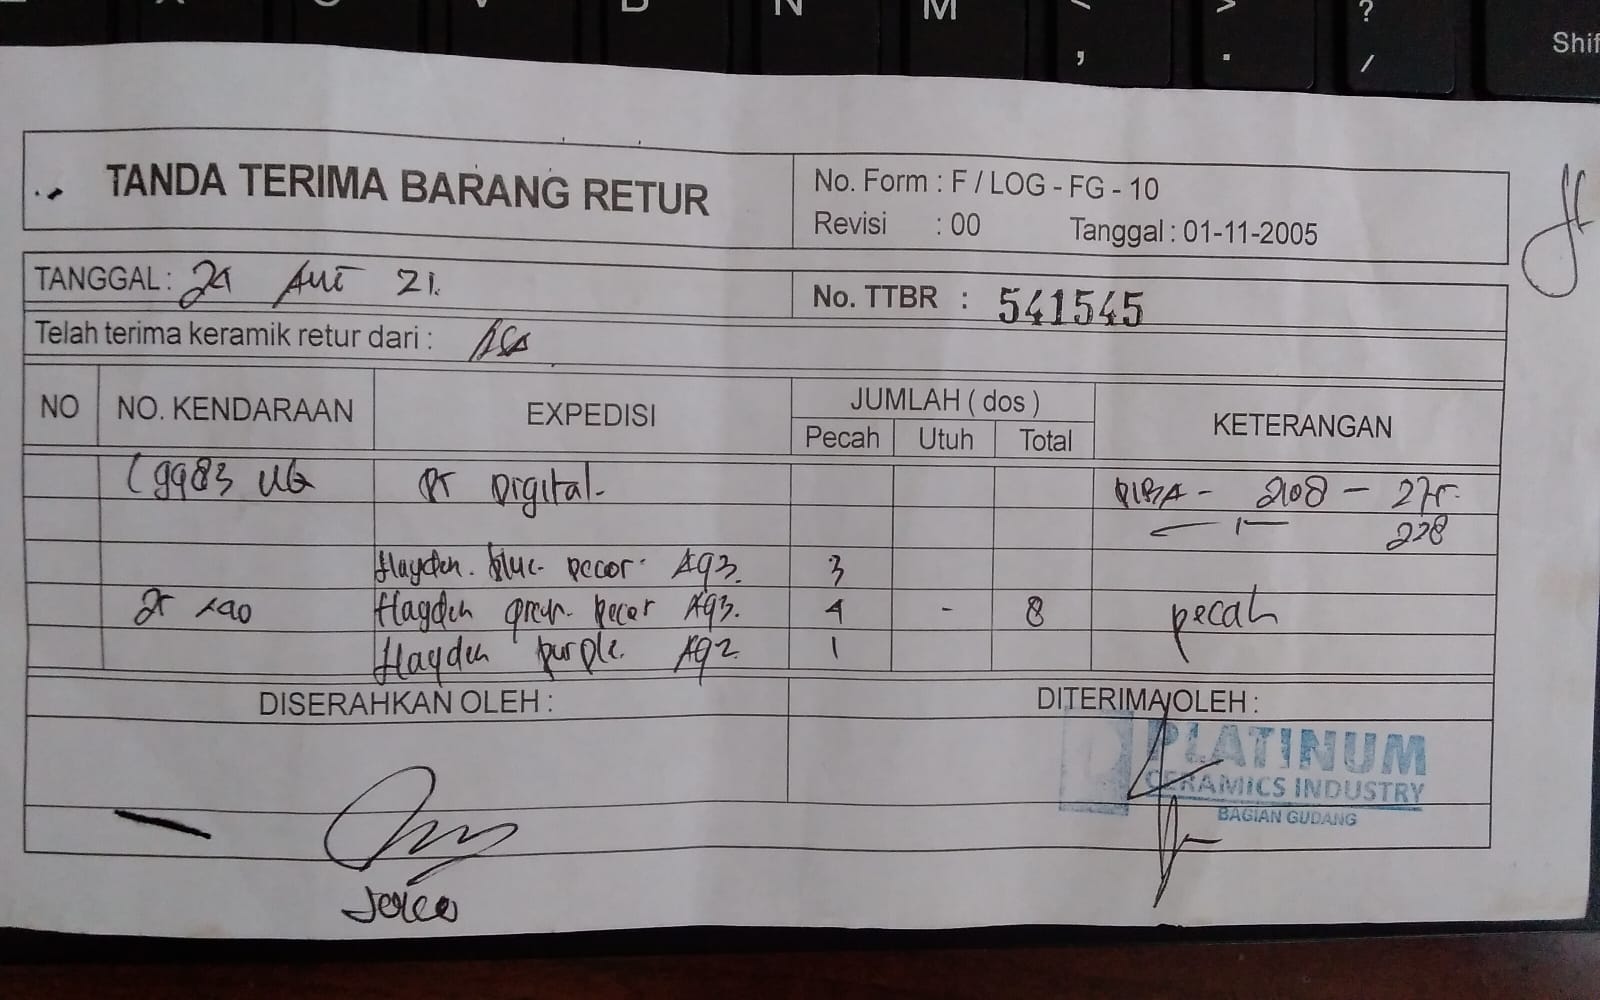 N M < > ?
, . / Shif
TANDA TERIMA BARANG RETUR
No. Form : F / LOG - FG - 10
Revisi : 00 Tanggal : 01-11-2005
TANGGAL : 21.
No. TTBR : 541545
Telah terima keramik retur dari :
NO NO. KENDARAAN EXPEDISI JUMLAH ( dos ) KETERANGAN
Pecah Utuh Total
9983 UG PT Digital - 2108 -
228
Hayden. blue. Decor. A93. 3
Hayden green. Decor A93. 4 - 8 pecah
Hayden purple. A92. 1
DISERAHKAN OLEH : DITERIMA OLEH :
PLATINUM
CERAMICS INDUSTRY
BAGIAN GUDANG